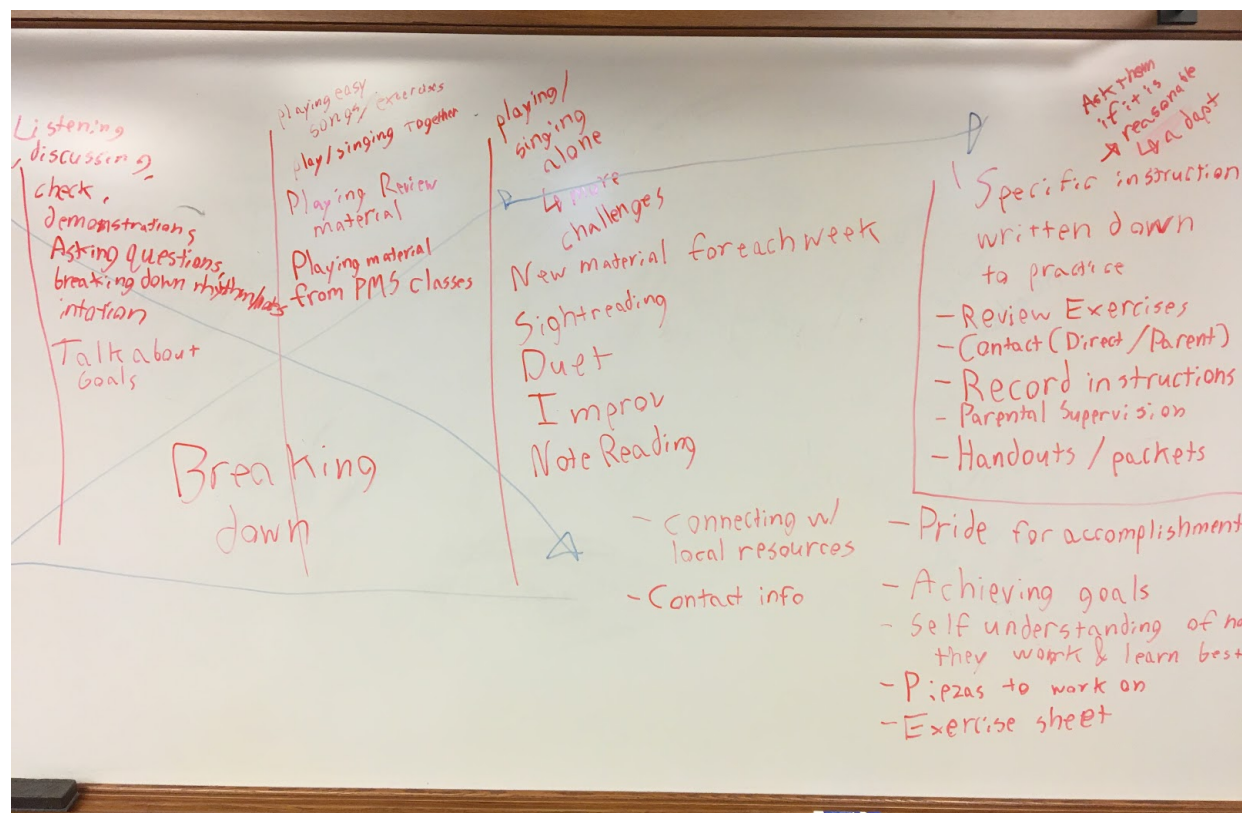 Listening
discussing,
check,
demonstrations
Asking questions,
breaking down rhythm/notes
intation
Talk about
Goals
playing easy
songs/exercises
play/singing together
Playing Review
material
Playing material
from PMS classes
Breaking
down
playing/
singing
alone
↳ more
challenges
New material for each week
Sightreading
Duet
Improv
Note Reading
- Connecting w/
local resources
- Contact info
Ask them
if it is
reasonable
↳ adapt
Specific instruction
written down
to practice
- Review Exercises
- Contact (Direct/Parent)
- Record instructions
- Parental Supervision
- Handouts/packets
- Pride for accomplishment
- Achieving goals
- Self understanding of
they work & learn best
- Piezas to work on
- Exercise sheet